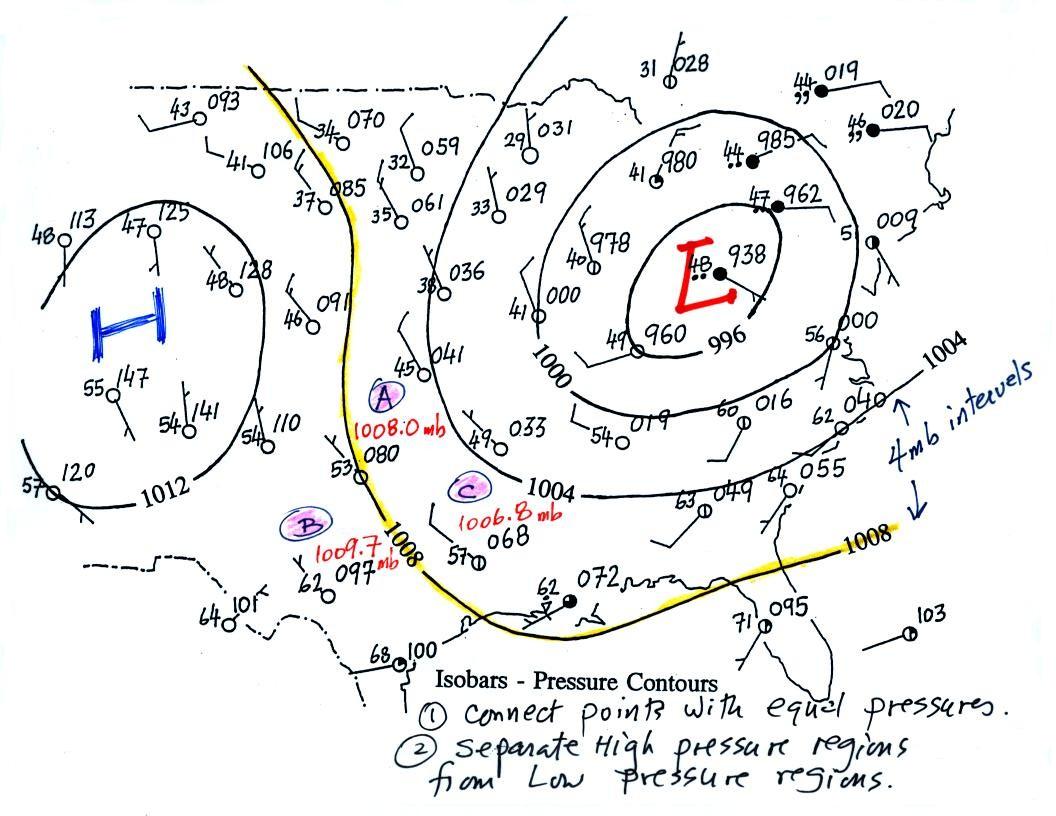 1004
31 028
44 019
46 020
43 093
34 070
059
32
29 031
44 985
41 106
41 980
37 085
35 061
33 029
47 962
48 113
47 125
5 009
40 978
48 938
L
48 128
38 036
46 091
41 000
H
49 960
996
56 000
1000
1004
45 041
55 147
A
1008.0 mb
60 016
62 040
4mb intervels
54 141
54 110
49 033
54 019
53 080
64 055
57 120
1012
C
1004
63 049
B
1006.8 mb
1009.7 mb
1008
57 068
1008
62 097
62 072
64 101
71 095
103
68 100
Isobars - Pressure Contours
① connect points with equal pressures.
② separate High pressure regions
from Low pressure regions.